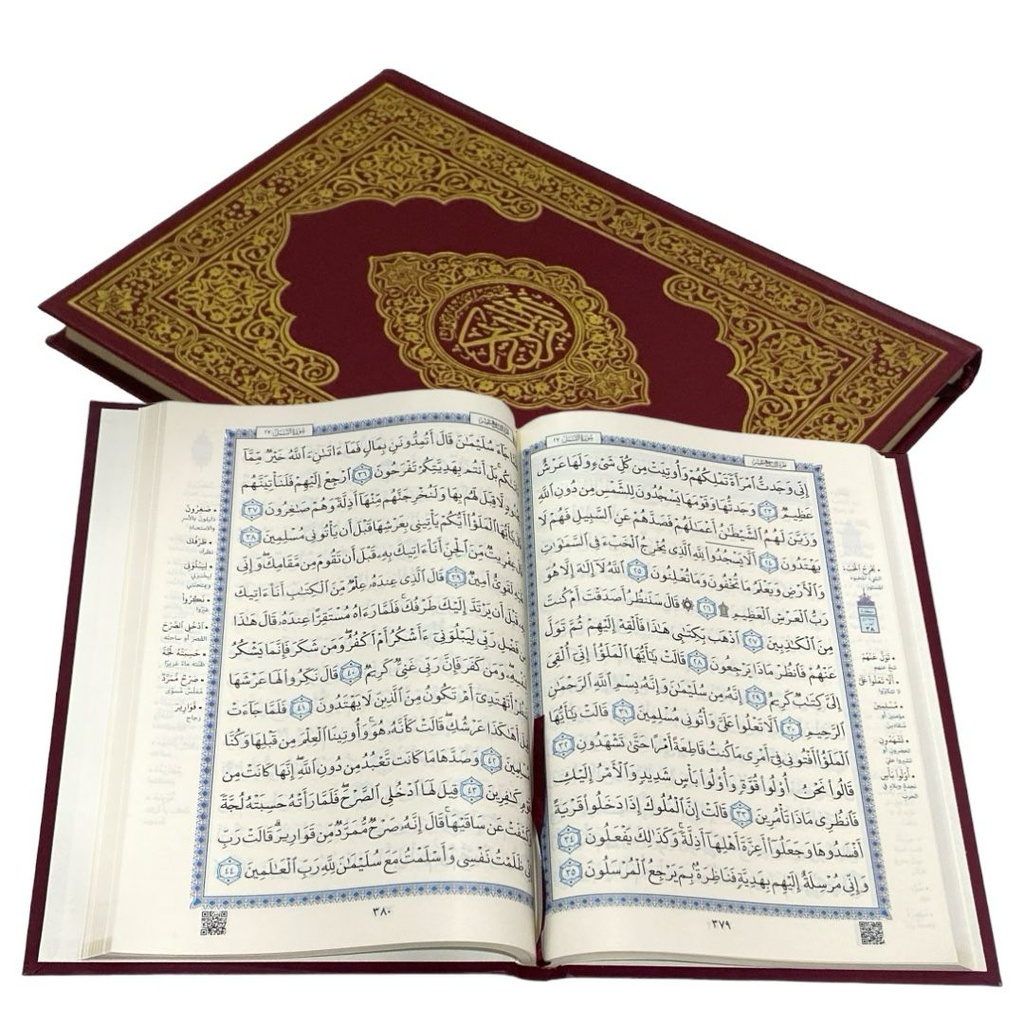 القرآن الكريم
سُورَةُ النَّمْلِ ٢٧
إِنِّي وَجَدتُّ ٱمْرَأَةً تَمْلِكُهُمْ وَأُوتِيَتْ مِن كُلِّ شَىْءٍ وَلَهَا عَرْشٌ
عَظِيمٌ ٢٣ وَجَدتُّهَا وَقَوْمَهَا يَسْجُدُونَ لِلشَّمْسِ مِن دُونِ ٱللَّهِ
وَزَيَّنَ لَهُمُ ٱلشَّيْطَٰنُ أَعْمَٰلَهُمْ فَصَدَّهُمْ عَنِ ٱلسَّبِيلِ فَهُمْ لَا
يَهْتَدُونَ ٢٤ أَلَّا يَسْجُدُوا۟ لِلَّهِ ٱلَّذِى يُخْرِجُ ٱلْخَبْءَ فِى ٱلسَّمَٰوَٰتِ
وَٱلْأَرْضِ وَيَعْلَمُ مَا تُخْفُونَ وَمَا تُعْلِنُونَ ٢٥ ٱللَّهُ لَآ إِلَٰهَ إِلَّا هُوَ
رَبُّ ٱلْعَرْشِ ٱلْعَظِيمِ ۩ ٢٦ ۞ قَالَ سَنَنظُرُ أَصَدَقْتَ أَمْ كُنتَ
مِنَ ٱلْكَٰذِبِينَ ٢٧ ٱذْهَب بِّكِتَٰبِى هَٰذَا فَأَلْقِهْ إِلَيْهِمْ ثُمَّ تَوَلَّ
عَنْهُمْ فَٱنظُرْ مَاذَا يَرْجِعُونَ ٢٨ قَالَتْ يَٰٓأَيُّهَا ٱلْمَلَؤُا۟ إِنِّىٓ أُلْقِىَ
إِلَىَّ كِتَٰبٌ كَرِيمٌ ٢٩ إِنَّهُۥ مِن سُلَيْمَٰنَ وَإِنَّهُۥ بِسْمِ ٱللَّهِ ٱلرَّحْمَٰنِ
ٱلرَّحِيمِ ٣٠ أَلَّا تَعْلُوا۟ عَلَىَّ وَأْتُونِى مُسْلِمِينَ ٣١ قَالَتْ يَٰٓأَيُّهَا
ٱلْمَلَؤُا۟ أَفْتُونِى فِىٓ أَمْرِى مَا كُنتُ قَاطِعَةً أَمْرًا حَتَّىٰ تَشْهَدُونِ ٣٢
قَالُوا۟ نَحْنُ أُو۟لُوا۟ قُوَّةٍ وَأُو۟لُوا۟ بَأْسٍ شَدِيدٍ وَٱلْأَمْرُ إِلَيْكِ
فَٱنظُرِى مَاذَا تَأْمُرِينَ ٣٣ قَالَتْ إِنَّ ٱلْمُلُوكَ إِذَا دَخَلُوا۟ قَرْيَةً
أَفْسَدُوهَا وَجَعَلُوٓا۟ أَعِزَّةَ أَهْلِهَآ أَذِلَّةً ۖ وَكَذَٰلِكَ يَفْعَلُونَ ٣٤
وَإِنِّى مُرْسِلَةٌ إِلَيْهِم بِهَدِيَّةٍ فَنَاظِرَةٌۢ بِمَ يَرْجِعُ ٱلْمُرْسَلُونَ ٣٥
٣٧٩
• تَوَلَّ عَنْهُمْ
• أَلَّا تَعْلُوا عَلَيَّ
• مُسْلِمِينَ
مؤمنين أو
• تَشْهَدُونِ
• أُولُوا بَأْسٍ
الحرب
سُورَةُ النَّمْلِ ٢٧
سُلَيْمَٰنَ قَالَ أَتُمِدُّونَنِ بِمَالٍ فَمَآ ءَاتَىٰنِۦَ ٱللَّهُ خَيْرٌ مِّمَّآ
بَلْ أَنتُم بِهَدِيَّتِكُمْ تَفْرَحُونَ ٣٦ ٱرْجِعْ إِلَيْهِمْ فَلَنَأْتِيَنَّهُم
لَّا قِبَلَ لَهُم بِهَا وَلَنُخْرِجَنَّهُم مِّنْهَآ أَذِلَّةً وَهُمْ صَٰغِرُونَ ٣٧
يَٰٓأَيُّهَا ٱلْمَلَؤُا۟ أَيُّكُمْ يَأْتِينِى بِعَرْشِهَا قَبْلَ أَن يَأْتُونِى مُسْلِمِينَ ٣٨
عِفْرِيتٌ مِّنَ ٱلْجِنِّ أَنَا۠ ءَاتِيكَ بِهِۦ قَبْلَ أَن تَقُومَ مِن مَّقَامِكَ ۖ وَإِنِّى
لَقَوِىٌّ أَمِينٌ ٣٩ قَالَ ٱلَّذِى عِندَهُۥ عِلْمٌ مِّنَ ٱلْكِتَٰبِ أَنَا۠ ءَاتِيكَ
قَبْلَ أَن يَرْتَدَّ إِلَيْكَ طَرْفُكَ ۚ فَلَمَّا رَءَاهُ مُسْتَقِرًّا عِندَهُۥ قَالَ هَٰذَا
فَضْلِ رَبِّى لِيَبْلُوَنِىٓ ءَأَشْكُرُ أَمْ أَكْفُرُ ۖ وَمَن شَكَرَ فَإِنَّمَا يَشْكُرُ
وَمَن كَفَرَ فَإِنَّ رَبِّى غَنِىٌّ كَرِيمٌ ٤٠ قَالَ نَكِّرُوا۟ لَهَا عَرْشَهَا
أَتَهْتَدِىٓ أَمْ تَكُونُ مِنَ ٱلَّذِينَ لَا يَهْتَدُونَ ٤١ فَلَمَّا جَآءَتْ
أَهَٰكَذَا عَرْشُكِ ۖ قَالَتْ كَأَنَّهُۥ هُوَ ۚ وَأُوتِينَا ٱلْعِلْمَ مِن قَبْلِهَا وَكُنَّا
مُسْلِمِينَ ٤٢ وَصَدَّهَا مَا كَانَت تَّعْبُدُ مِن دُونِ ٱللَّهِ ۖ إِنَّهَا كَانَتْ مِن
كَٰفِرِينَ ٤٣ قِيلَ لَهَا ٱدْخُلِى ٱلصَّرْحَ ۖ فَلَمَّا رَأَتْهُ حَسِبَتْهُ لُجَّةً
عَن سَاقَيْهَا ۚ قَالَ إِنَّهُۥ صَرْحٌ مُّمَرَّدٌ مِّن قَوَارِيرَ ۗ قَالَتْ رَبِّ
ظَلَمْتُ نَفْسِى وَأَسْلَمْتُ مَعَ سُلَيْمَٰنَ لِلَّهِ رَبِّ ٱلْعَٰلَمِينَ ٤٤
٣٨٠
• صَٰغِرُونَ
ذليلون بالأسر
والاستعباد
• طَرْفُكَ
نظرك
• لِيَبْلُوَنِي
ليختبرني
ويمتحنني
• نَكِّرُوا
غيّروا
• ادْخُلِي الصَّرْحَ
القصر أو ساحته
• حَسِبَتْهُ لُجَّةً
ظنته ماءً غزيرًا
• صَرْحٌ مُمَرَّدٌ
مملّس مسوّى
• قَوَارِيرَ
زجاج